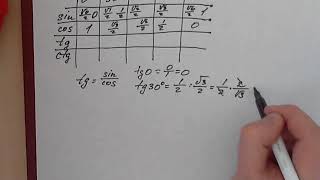 sin √0/2 0 √1/2 1/2 √2/2 √3/2 1
cos 1 √3/2 √2/2 1/2 0
tg
ctg
tg = sin/cos tg0 = 0/1 = 0
tg30° = 1/2 : √3/2 = 1/2 · 2/√3